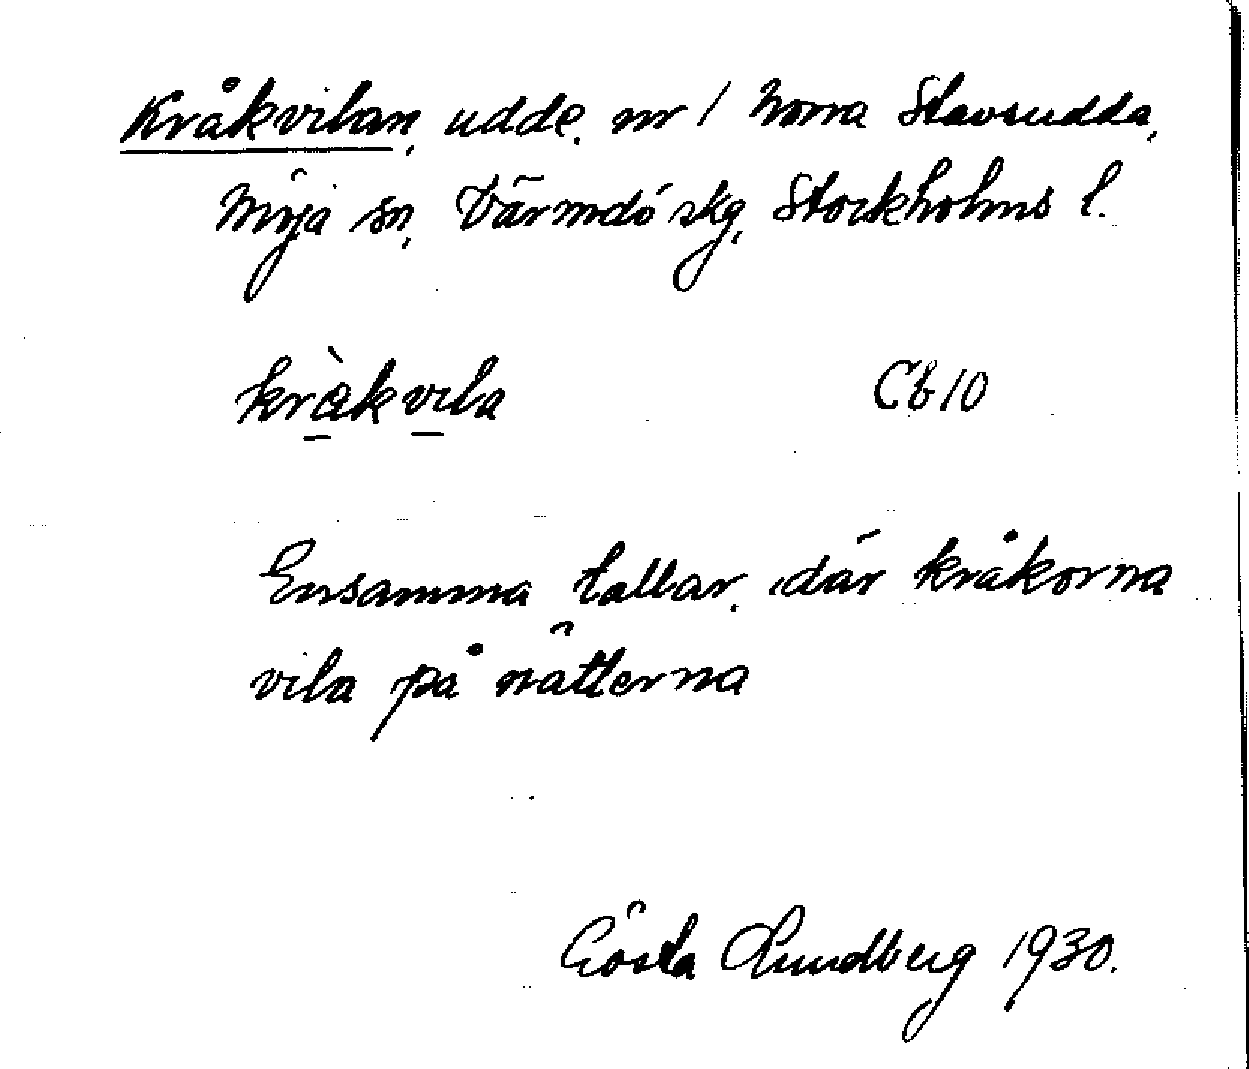 Kråkvilan, udde, nr 1 Norra Stavsudda,
Möja sn, Värmdö skg, Stockholms l.
kràkvila Cb10
Ensamma tallar, där kråkorna
vila på nätterna
Gösta Lundberg 1930.